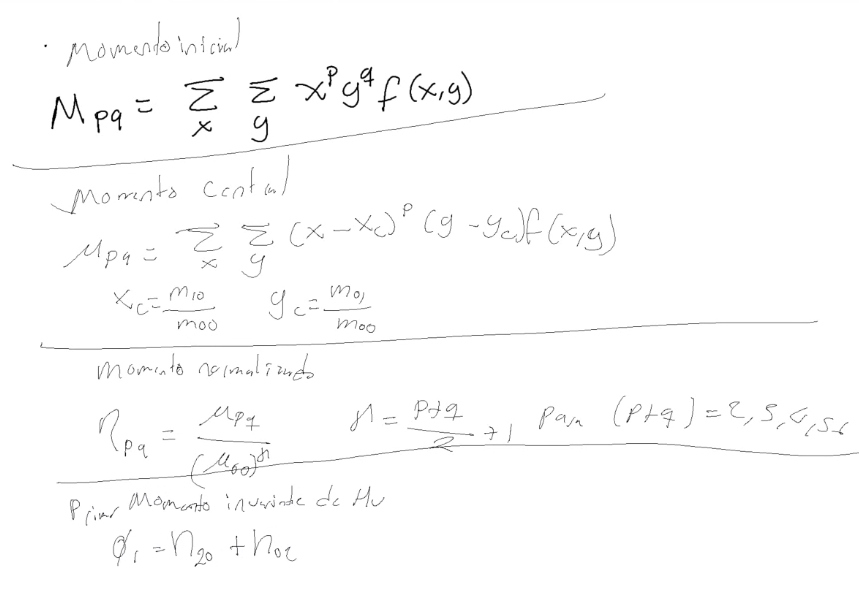 · Momento inicial
M_pq = Σ_x Σ_y x^p y^q f(x,y)
Momento central
μ_pq = Σ_x Σ_y (x - x_c)^p (y - y_c) f(x,y)
x_c = m10/m00    y_c = m01/m00
Momento normalizado
η_pq = μ_pq/(μ_00)^γ    γ = p+q/2 + 1 para (p+q) = 2, 3, 4, 5
Primer Momento invariante de Hu
φ_1 = η_20 + η_02